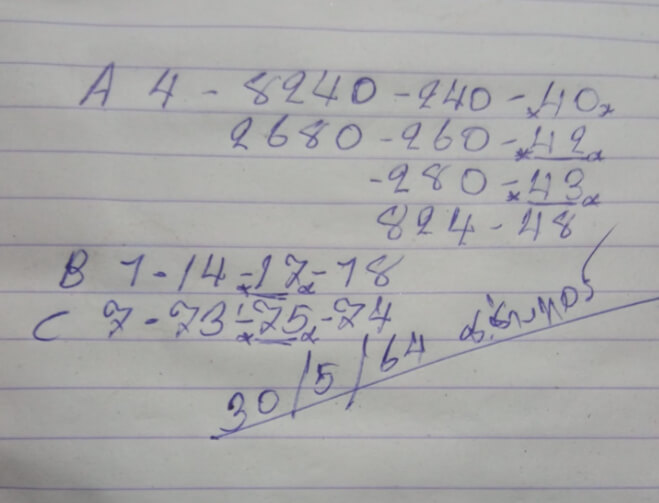 A 4 - 8240 - 240 - *40*
2680 - 260 - *42*
- 280 - *43*
824 - 48
B 1 - 14 - *17* - 18
C 7 - 73 - *75* - 74
30/5/64